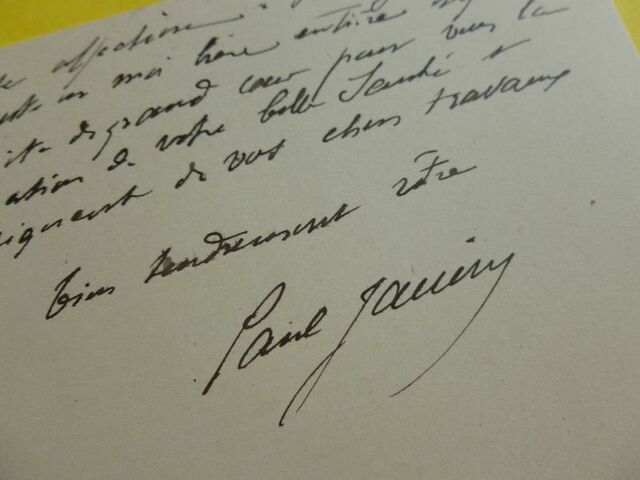 affection
en moi bien entière
de grand cœur pour vous la
ation de votre belle Santé et
de vos chers travaux
bien tendrement vôtre
Paul Janin